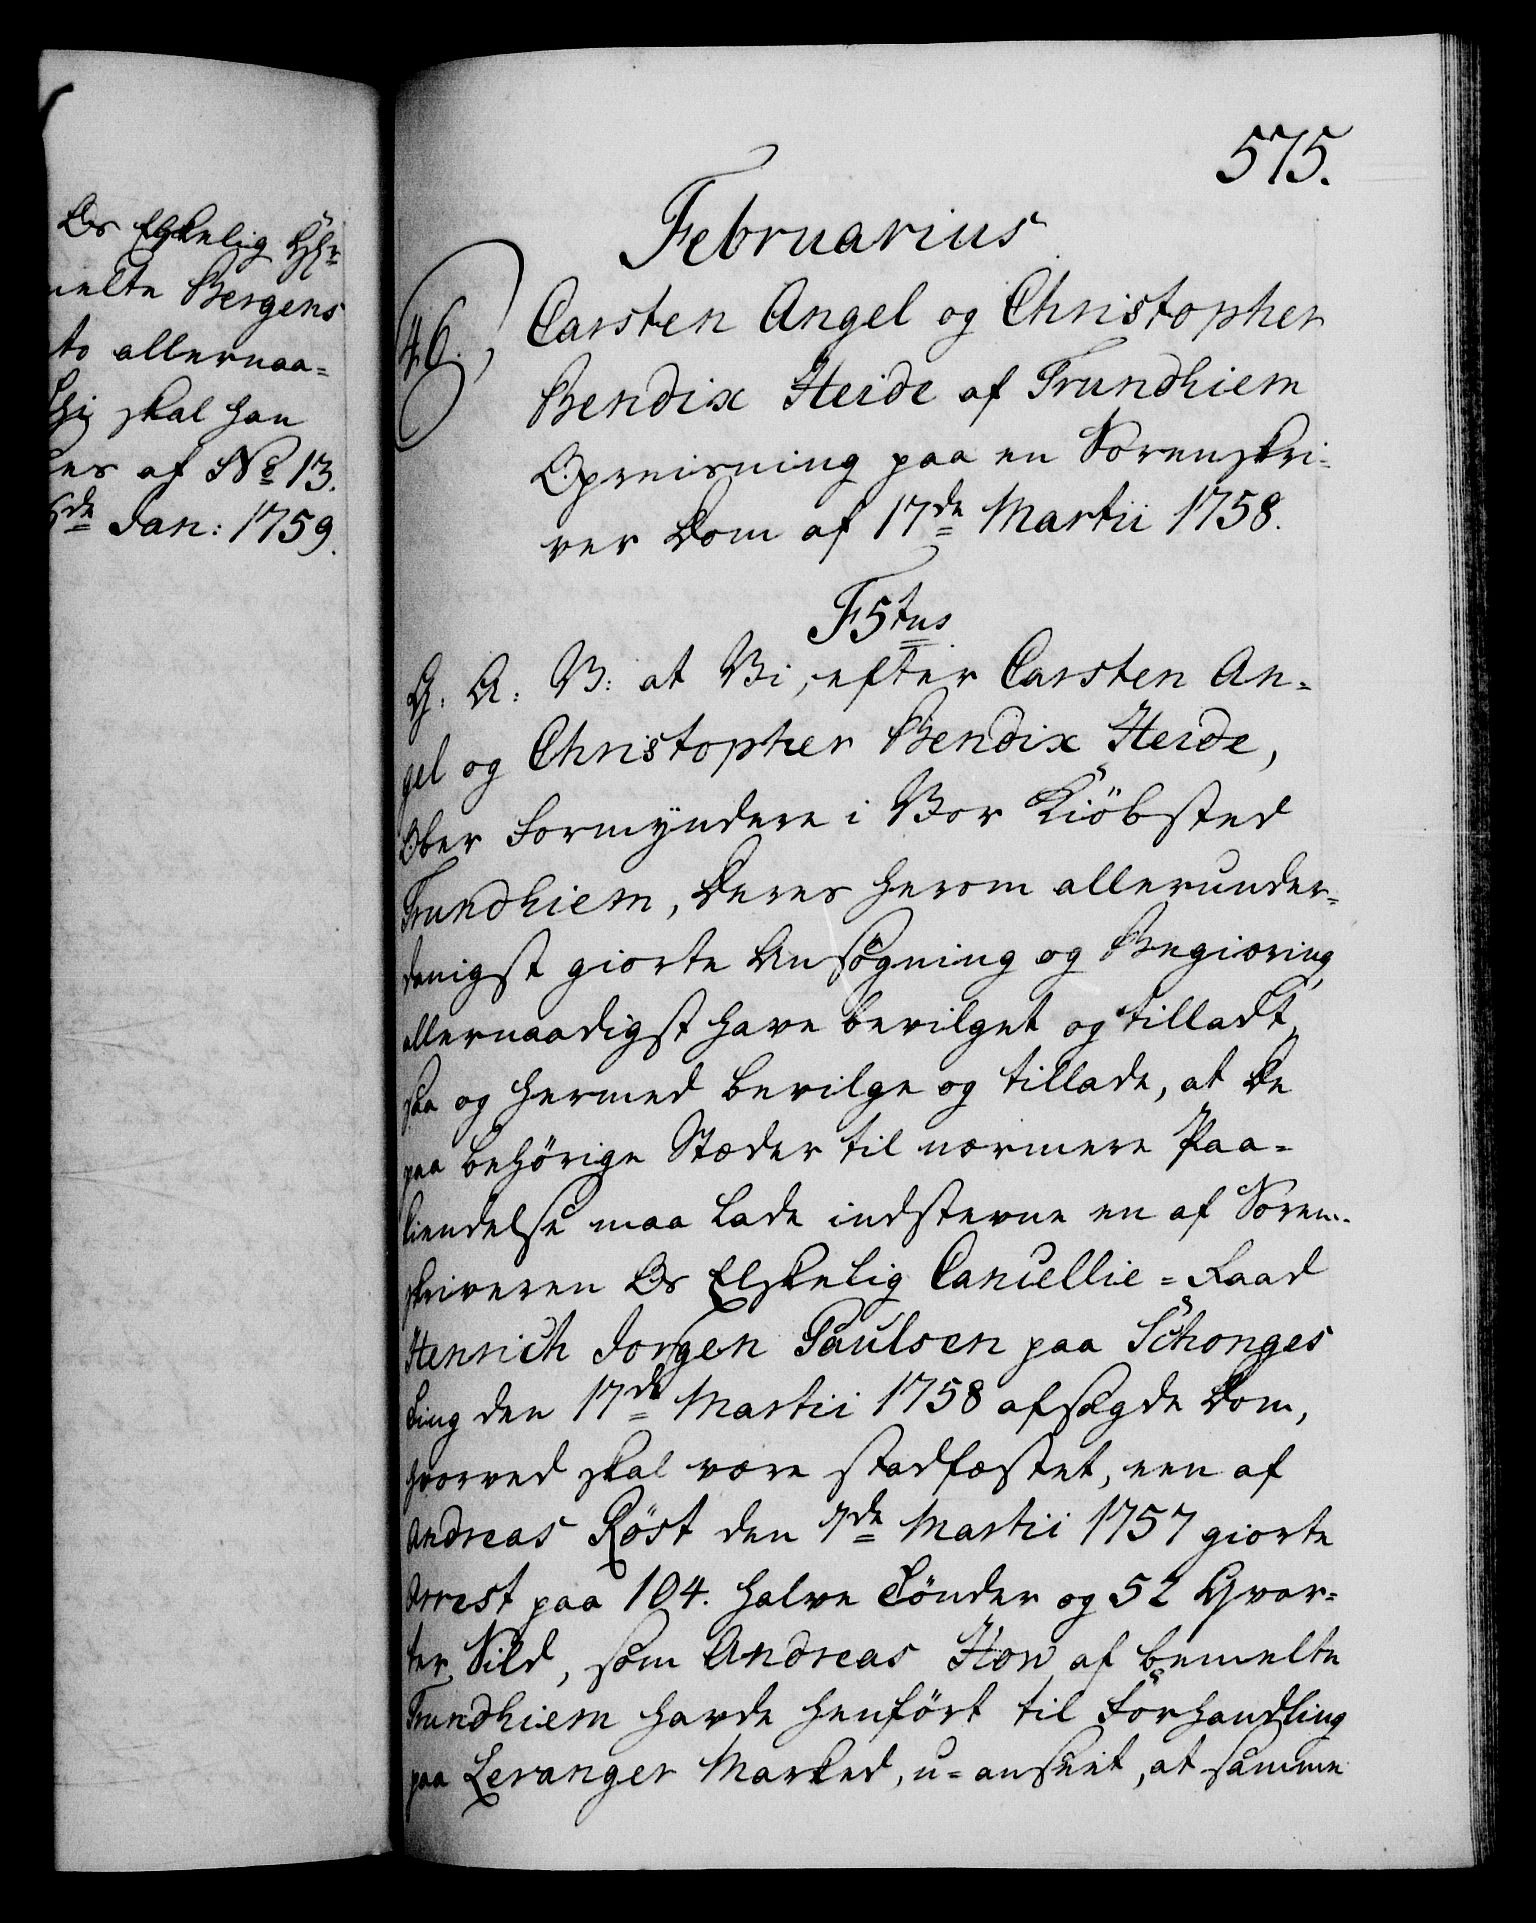 Os Elskelig Hr
melte Bergens
to allernaa=
skal han
es af No 13.
de Jan: 1759.
575.
Februarius
46.
Carsten Angel og Christopher
Bendix Heide af Trundhiem
Opreisning paa en Sorenskri=
ver Dom af 17de Martii 1758.
F5tus
G. A. V: at Vi, efter Carsten An=
gel og Christopher Bendix Heide,
Ober Formyndere i Vor Kiöbsted
Trundhiem, deres herom allerunder=
danigst giorte Ansøgning og Begiering,
allernaadigst have bevilget og tilladt,
saa og hermed bevilge og tillade, at de
paa behörige Stæder til nærmere Paa=
kiendelse maa lade indstevne en af Soren=
skriveren Os Elskelig Cancellie=Raad
Henrich Jorgen Paulsen paa Schonges
Ting den 17de Martii 1758 afsagde Dom,
hvorved skal være stadfæstet, een af
Andreas Röst den 7de Martii 1757 giorte
Arrest paa 104. halve Tönder og 52 Qvar=
ter Sild, som Andreas How af bemelte
Trundhiem havde henfört til Forhandling
paa Levanger Marked, u=anseet, at samme